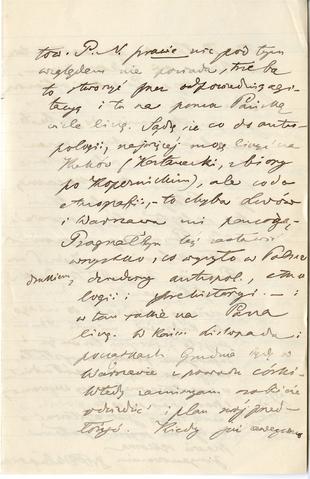 tow. P. N. prawie nic pod tym
względem nie posiada, trzeba
to stworzyć przez odpowiednią agi-
tacyę i tu na pomoc Pańską
wiele liczę. Sądzę że co do antro-
pologii, najwięcej mogę liczyć na
Kraków (Kostanecki, zbiory
po Kopernickim), ale co do
etnografii, - to chyba Lwów
i Warszawa mi pomogą.
Pragnąłbym też zestawić
wszystko, co wyszło w Polsce
drukiem, z dziedziny antropol., etno-
logii i prehistoryi. - i
w tem także na Pana
liczę. W końcu listopada i
początkach Grudnia będę w
Warszawie z powodu córki.
Wtedy zamierzam rodziców
odwiedzić i plan mój przed-
łożyć. Kiedy już